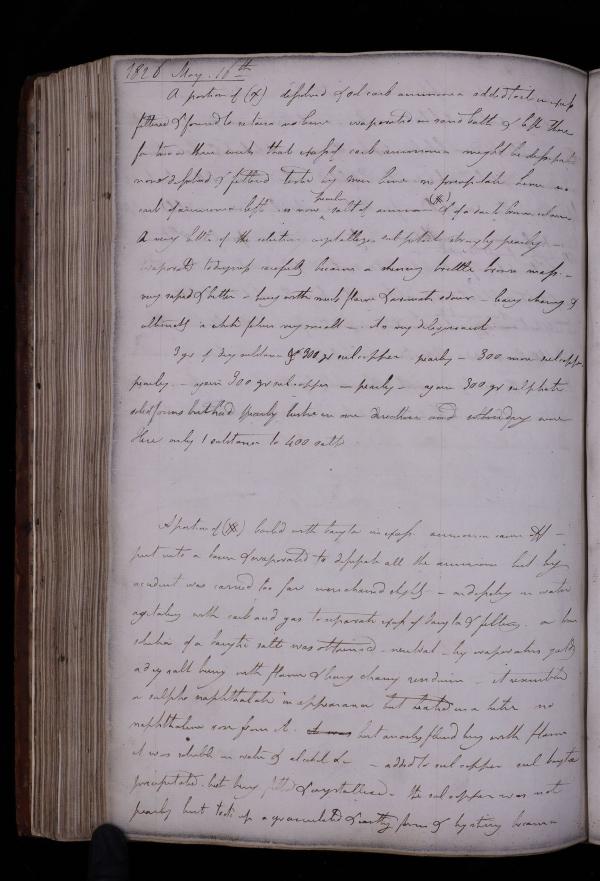 1826 May. 16th
A portion of (X) dissolved & sol carb ammonia added till in excess
filtered & found to retain no lime evaporated on sand bath & left there
for two or three weeks that excess of carb ammonia might be dissipated
now dissolved & filtered tested by was lime no precipitate hence no
carb of ammonia left is now peculiar salt of ammonia (X) & of a dark brown colour
A very little of the solution crystallizes sul potash strongly pearly -
evaporated to dryness carefully became a shining brittle brown mass. -
very sapid & bitter - burns with much flame & aromatic odour - leaving charcoal &
ultimately a white very small -
3 grs of dry substance & 300 gr sul copper pearly - 300 more sul copper
pearly - again 300 gr sul copper - pearly - again 300 gr sulphate
solid forms but had pearly lustre in one direction and
Here only 1 substance to 400 salt
A portion of (X) boiled with baryta in excess. ammonia came off -
put into a basin & evaporated to dissipate all the ammonia but by
accident was carried too far & was charred slightly - in water
agitating with carb acid gas to separate excess of baryta & filtering. a brown
solution of a barytic salt was obtained - neutral - by evaporation yields
a dry salt burning with flame & leaving charry residuum - it resembled
a sulpho naphthalate in appearance but heated in a tube no
naphthaline rose from it. but fluid burning with flame
it was soluble in water & alcohol &c - added to sul copper sul baryta
precipitated. but being filtered & crystallized - the sul copper was not
pearly but took up a granulated & earthy form & by drying became